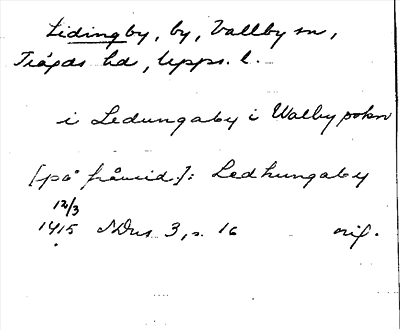 Lidingby, by, Vallby sn,
Trögds hd, Upps. l.
i Ledungaby i Walby sokn
[på frånsid.]: Ledhungaby
12/3
1415 SDns 3, s. 16 orig.